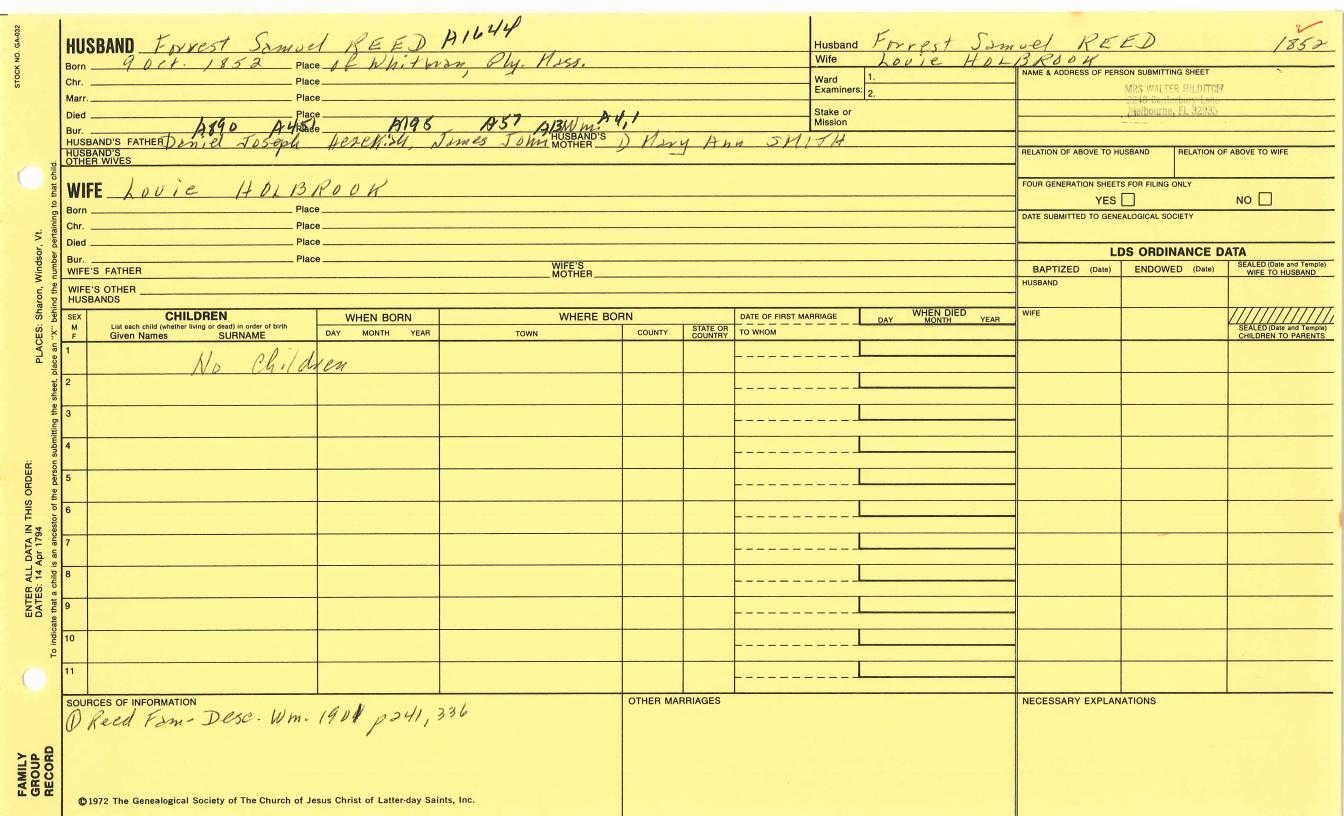 STOCK NO. GA-032
HUSBAND Forrest Samuel REED A1644
Born 9 Oct. 1852 Place of Whitman, Ply. Mass.
Chr. Place
Marr. Place
Died Place
Bur. Place
A890 A451 A195 A57 A13 Wm. A4,1
HUSBAND'S FATHER Daniel Joseph Hezekiah, James John HUSBAND'S MOTHER ① Mary Ann SMITH
HUSBAND'S OTHER WIVES
WIFE Louie HOLBROOK
Born Place
Chr. Place
Died Place
Bur. Place
WIFE'S FATHER WIFE'S MOTHER
WIFE'S OTHER HUSBANDS
Husband Forrest Samuel REED 1852
Wife Louie HOLBROOK
Ward Examiners: 1. 2.
Stake or Mission
NAME & ADDRESS OF PERSON SUBMITTING SHEET
MRS WALTER HILDITCH
Melbourne, FL 32935
RELATION OF ABOVE TO HUSBAND RELATION OF ABOVE TO WIFE
FOUR GENERATION SHEETS FOR FILING ONLY
YES NO
DATE SUBMITTED TO GENEALOGICAL SOCIETY
LDS ORDINANCE DATA
BAPTIZED (Date) ENDOWED (Date) SEALED (Date and Temple) WIFE TO HUSBAND
HUSBAND
WIFE
SEALED (Date and Temple) CHILDREN TO PARENTS
SEX M F
CHILDREN
List each child (whether living or dead) in order of birth
Given Names SURNAME
WHEN BORN
DAY MONTH YEAR
WHERE BORN
TOWN COUNTY STATE OR COUNTRY
DATE OF FIRST MARRIAGE
TO WHOM
WHEN DIED
DAY MONTH YEAR
1 No Children
2
3
4
5
6
7
8
9
10
11
SOURCES OF INFORMATION
① Reed Fam- Desc. Wm. 1901 p241, 336
OTHER MARRIAGES
NECESSARY EXPLANATIONS
©1972 The Genealogical Society of The Church of Jesus Christ of Latter-day Saints, Inc.
FAMILY GROUP RECORD
ENTER ALL DATA IN THIS ORDER:
DATES: 14 Apr 1794
PLACES: Sharon, Windsor, Vt.
To indicate that a child is an ancestor of the person submitting the sheet, place an "X" behind the number pertaining to that child.